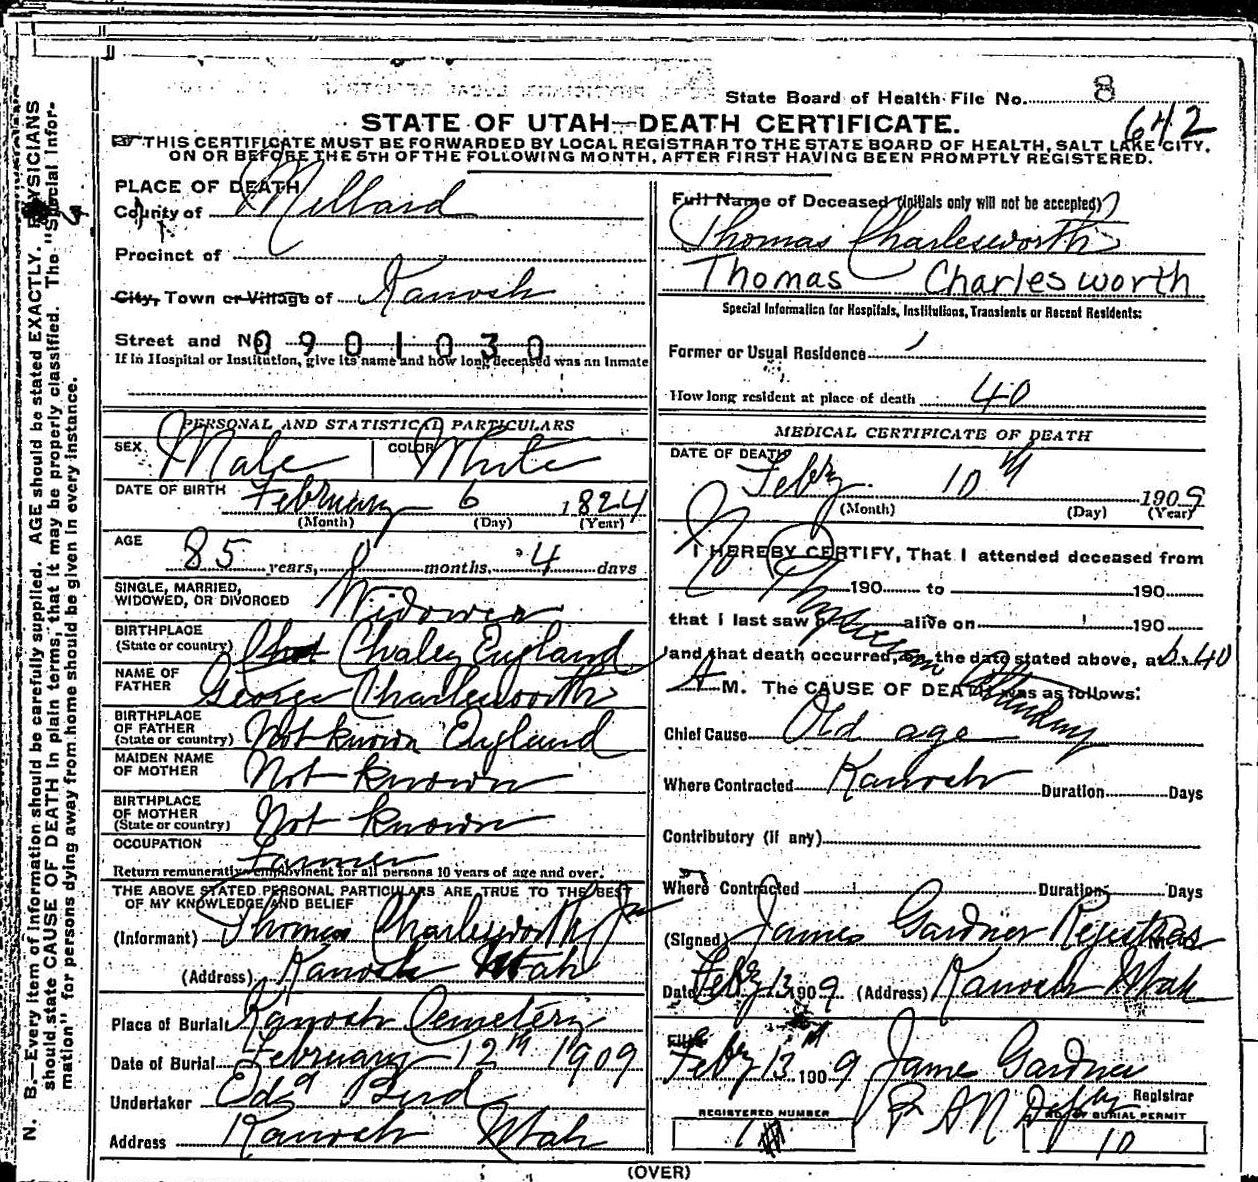 State Board of Health File No. 8
642
STATE OF UTAH—DEATH CERTIFICATE.
THIS CERTIFICATE MUST BE FORWARDED BY LOCAL REGISTRAR TO THE STATE BOARD OF HEALTH, SALT LAKE CITY,
ON OR BEFORE THE 5TH OF THE FOLLOWING MONTH, AFTER FIRST HAVING BEEN PROMPTLY REGISTERED.
N. B.—Every item of information should be carefully supplied. AGE should be stated EXACTLY. PHYSICIANS
should state CAUSE OF DEATH in plain terms, that it may be properly classified. The "Special Infor-
mation" for persons dying away from home should be given in every instance.
PLACE OF DEATH
County of Millard
Precinct of
City, Town or Village of Kanosh
Street and No. 0901030
If in Hospital or Institution, give its name and how long deceased was an Inmate
PERSONAL AND STATISTICAL PARTICULARS
SEX Male COLOR White
DATE OF BIRTH February 6 1824
(Month) (Day) (Year)
AGE
85 years, months, 4 days
SINGLE, MARRIED,
WIDOWED, OR DIVORCED Widower
BIRTHPLACE
(State or country) Chaley England
NAME OF
FATHER George Charlesworth
BIRTHPLACE
OF FATHER
(State or country) Not known England
MAIDEN NAME
OF MOTHER Not known
BIRTHPLACE
OF MOTHER
(State or country) Not known
OCCUPATION Farmer
Return remunerative employment for all persons 10 years of age and over.
THE ABOVE STATED PERSONAL PARTICULARS ARE TRUE TO THE BEST
OF MY KNOWLEDGE AND BELIEF
(Informant) Thomas Charlesworth Jr
(Address) Kanosh Utah
Place of Burial Kanosh Cemetery
Date of Burial February 12th 1909
Undertaker Edg Bird
Address Kanosh Utah
Full Name of Deceased (Initials only will not be accepted)
Thomas Charlesworth
Thomas Charlesworth
Special Information for Hospitals, Institutions, Transients or Recent Residents:
Former or Usual Residence
How long resident at place of death 40
MEDICAL CERTIFICATE OF DEATH
DATE OF DEATH
Feby. 10th 1909
(Month) (Day) (Year)
I HEREBY CERTIFY, That I attended deceased from
190 to 190
that I last saw h alive on 190
and that death occurred, on the date stated above, at 6.40
A M. The CAUSE OF DEATH was as follows:
No Physician Attending
Chief Cause Old age
Where Contracted Kanosh Duration Days
Contributory (if any)
Where Contracted Duration Days
(Signed) James Gardner Registrar M. D.
Date Feby 13 1909 (Address) Kanosh Utah
FILED
Feby 13th 1909 James Gardner
Registrar
REGISTERED NUMBER
1
NO. OF BURIAL PERMIT
10
(OVER)